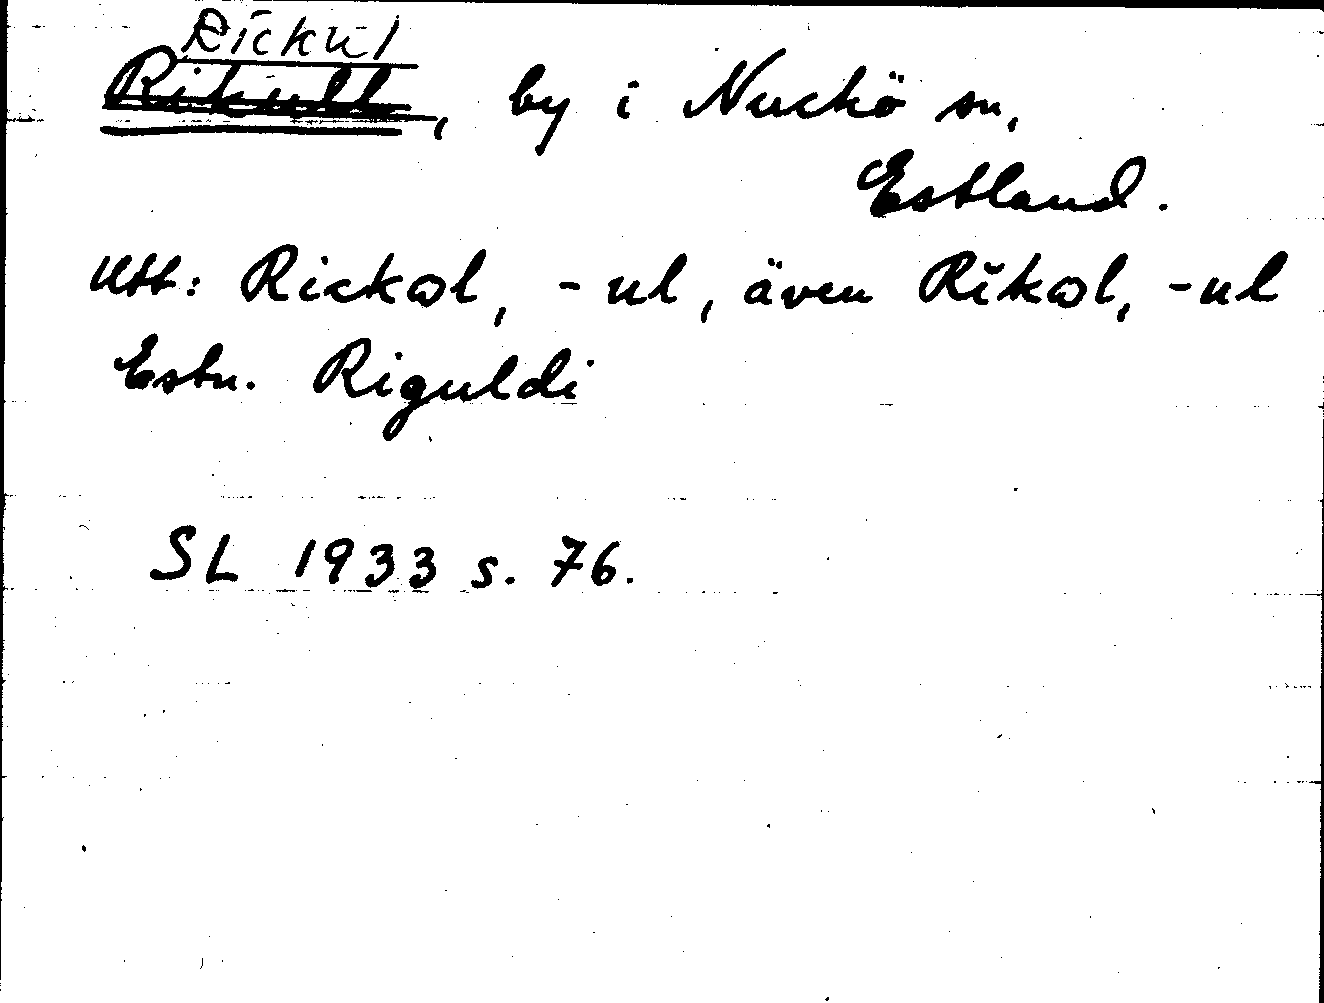 Rickul
Rikull, by i Nuckö sn,
Estland.
Utt: Rickol, -ul, även Rīkol, -ul
Estn. Riguldi
SL 1933 s. 76.